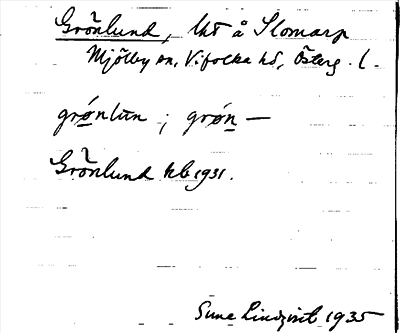 Grönlund, lht å Slomarp
Mjölby sn, Vifolka hd, Österg. l.
grǿnlun ; grǿn —
Grönlund kb 1931.
Sune Lindqvist 1935